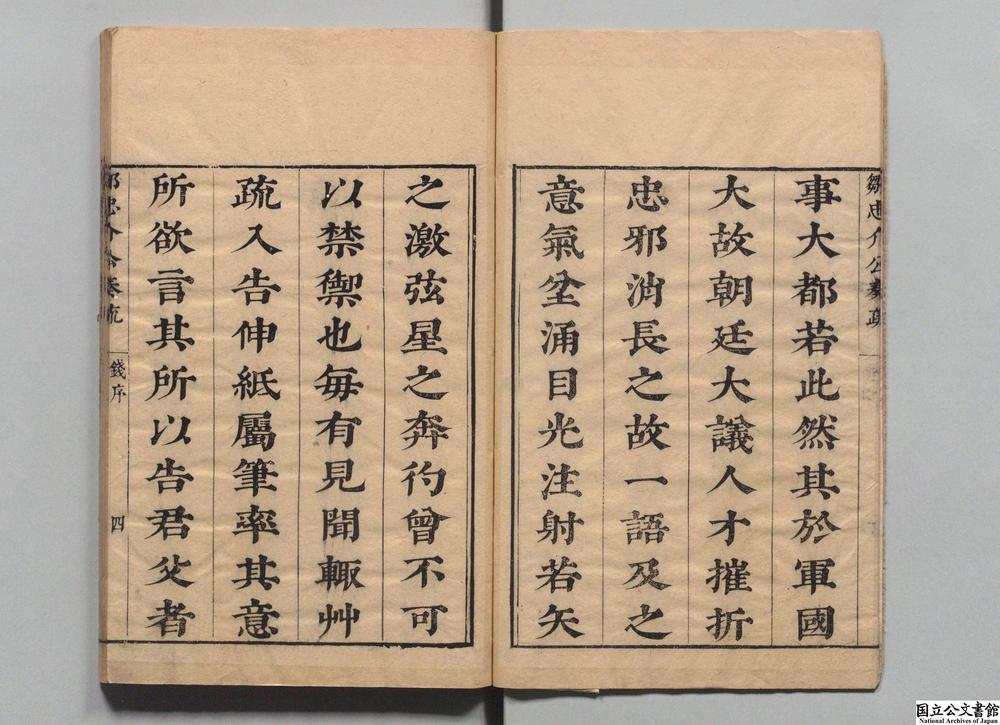 鄒忠介公奏疏
事大都若此然其於軍國
大故朝廷大議人才摧折
忠邪消長之故一語及之
意氣坌涌目光注射若矢
之激弦星之奔彴曾不可
以禁禦也每有見聞輙艸
疏入告伸紙屬筆率其意
所欲言其所以告君父者
鄒忠介公奏疏
錢序
四
国立公文書館
National Archives of Japan